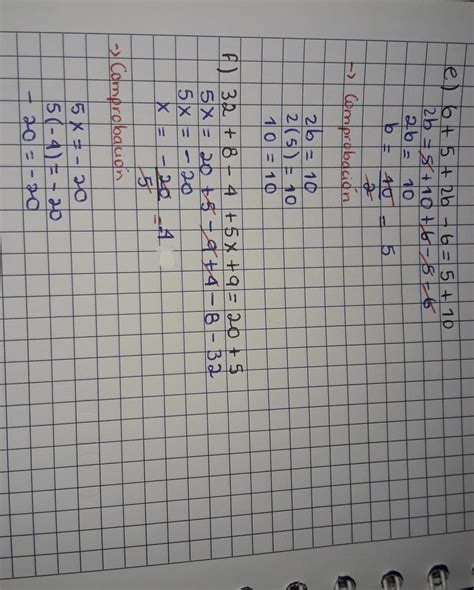 e) 6 + 5 + 2b - 6 = 5 + 10
2b = 5 + 10 + 6 - 5 - 6
2b = 10
b = 10/2 = 5
→ Comprobación
2b = 10
2(5) = 10
10 = 10
f) 32 + 8 - 4 + 5x + 9 = 20 + 5
5x = 20 + 5 - 9 + 4 - 8 - 32
5x = - 20
x = - 20/5 = 4
→ Comprobación
5x = - 20
5(-4) = - 20
- 20 = - 20